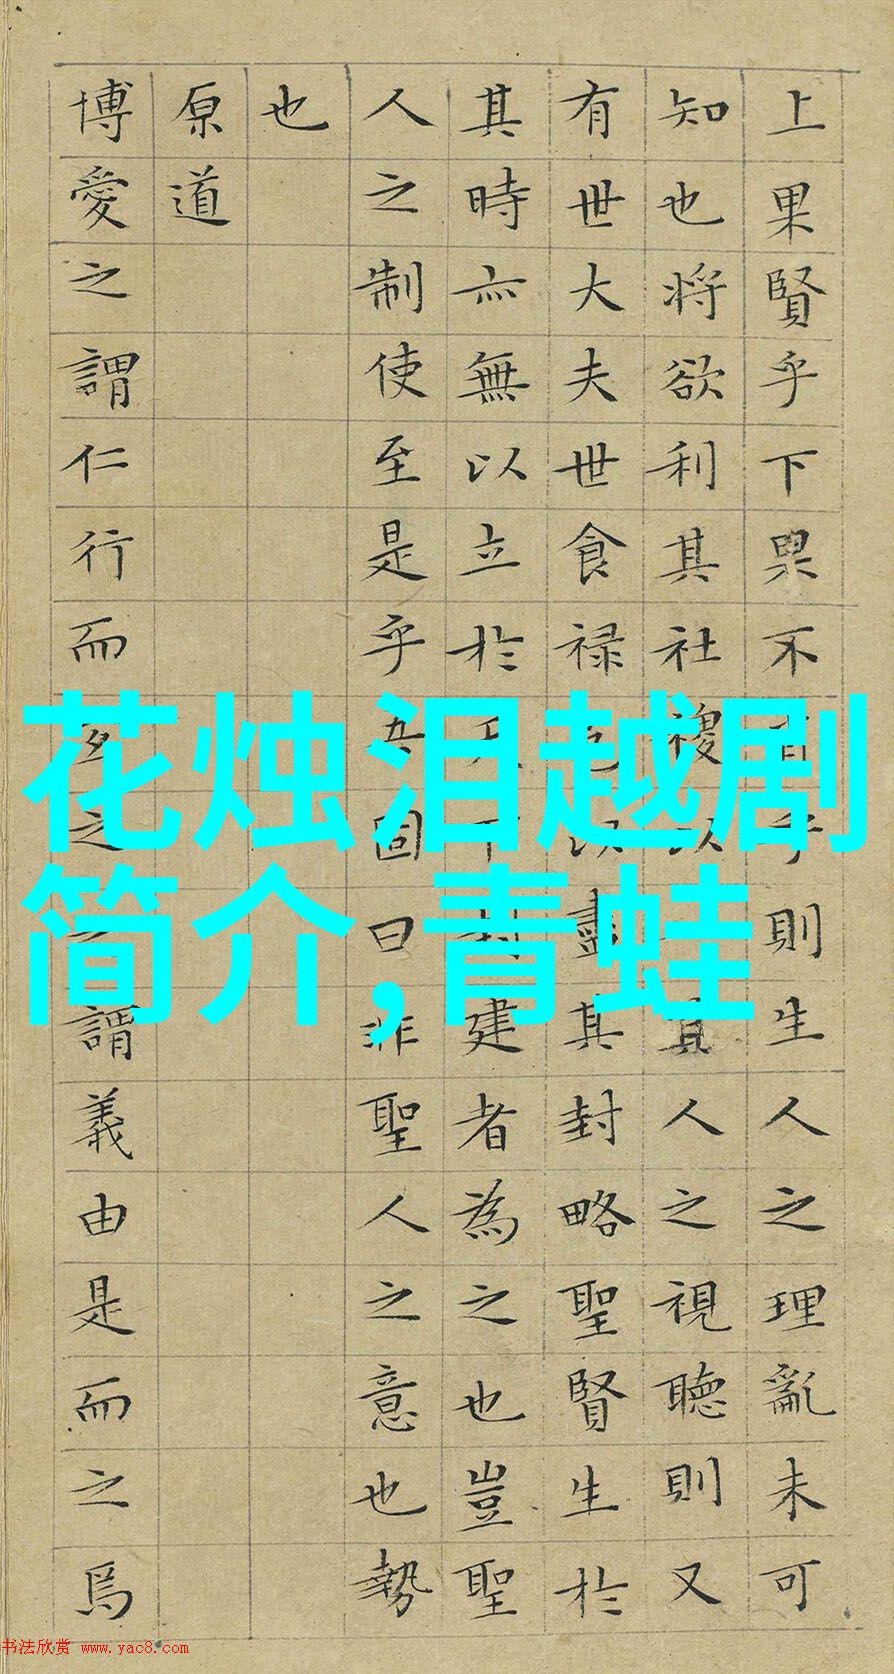 上果賢乎下果不肖乎則生人之理亂未可
知也將欲利其社稷以其人之視聽則又
有世大夫世食禄邑以盡其封略聖賢生於
其時亦無以立於天下封建者為之也豈聖
人之制使至是乎吾固曰非聖人之意也勢
也
原道
博愛之謂仁行而宜之之謂義由是而之焉
花烛泪越剧
简介,青蛙
书法欣赏 www.yac8.com